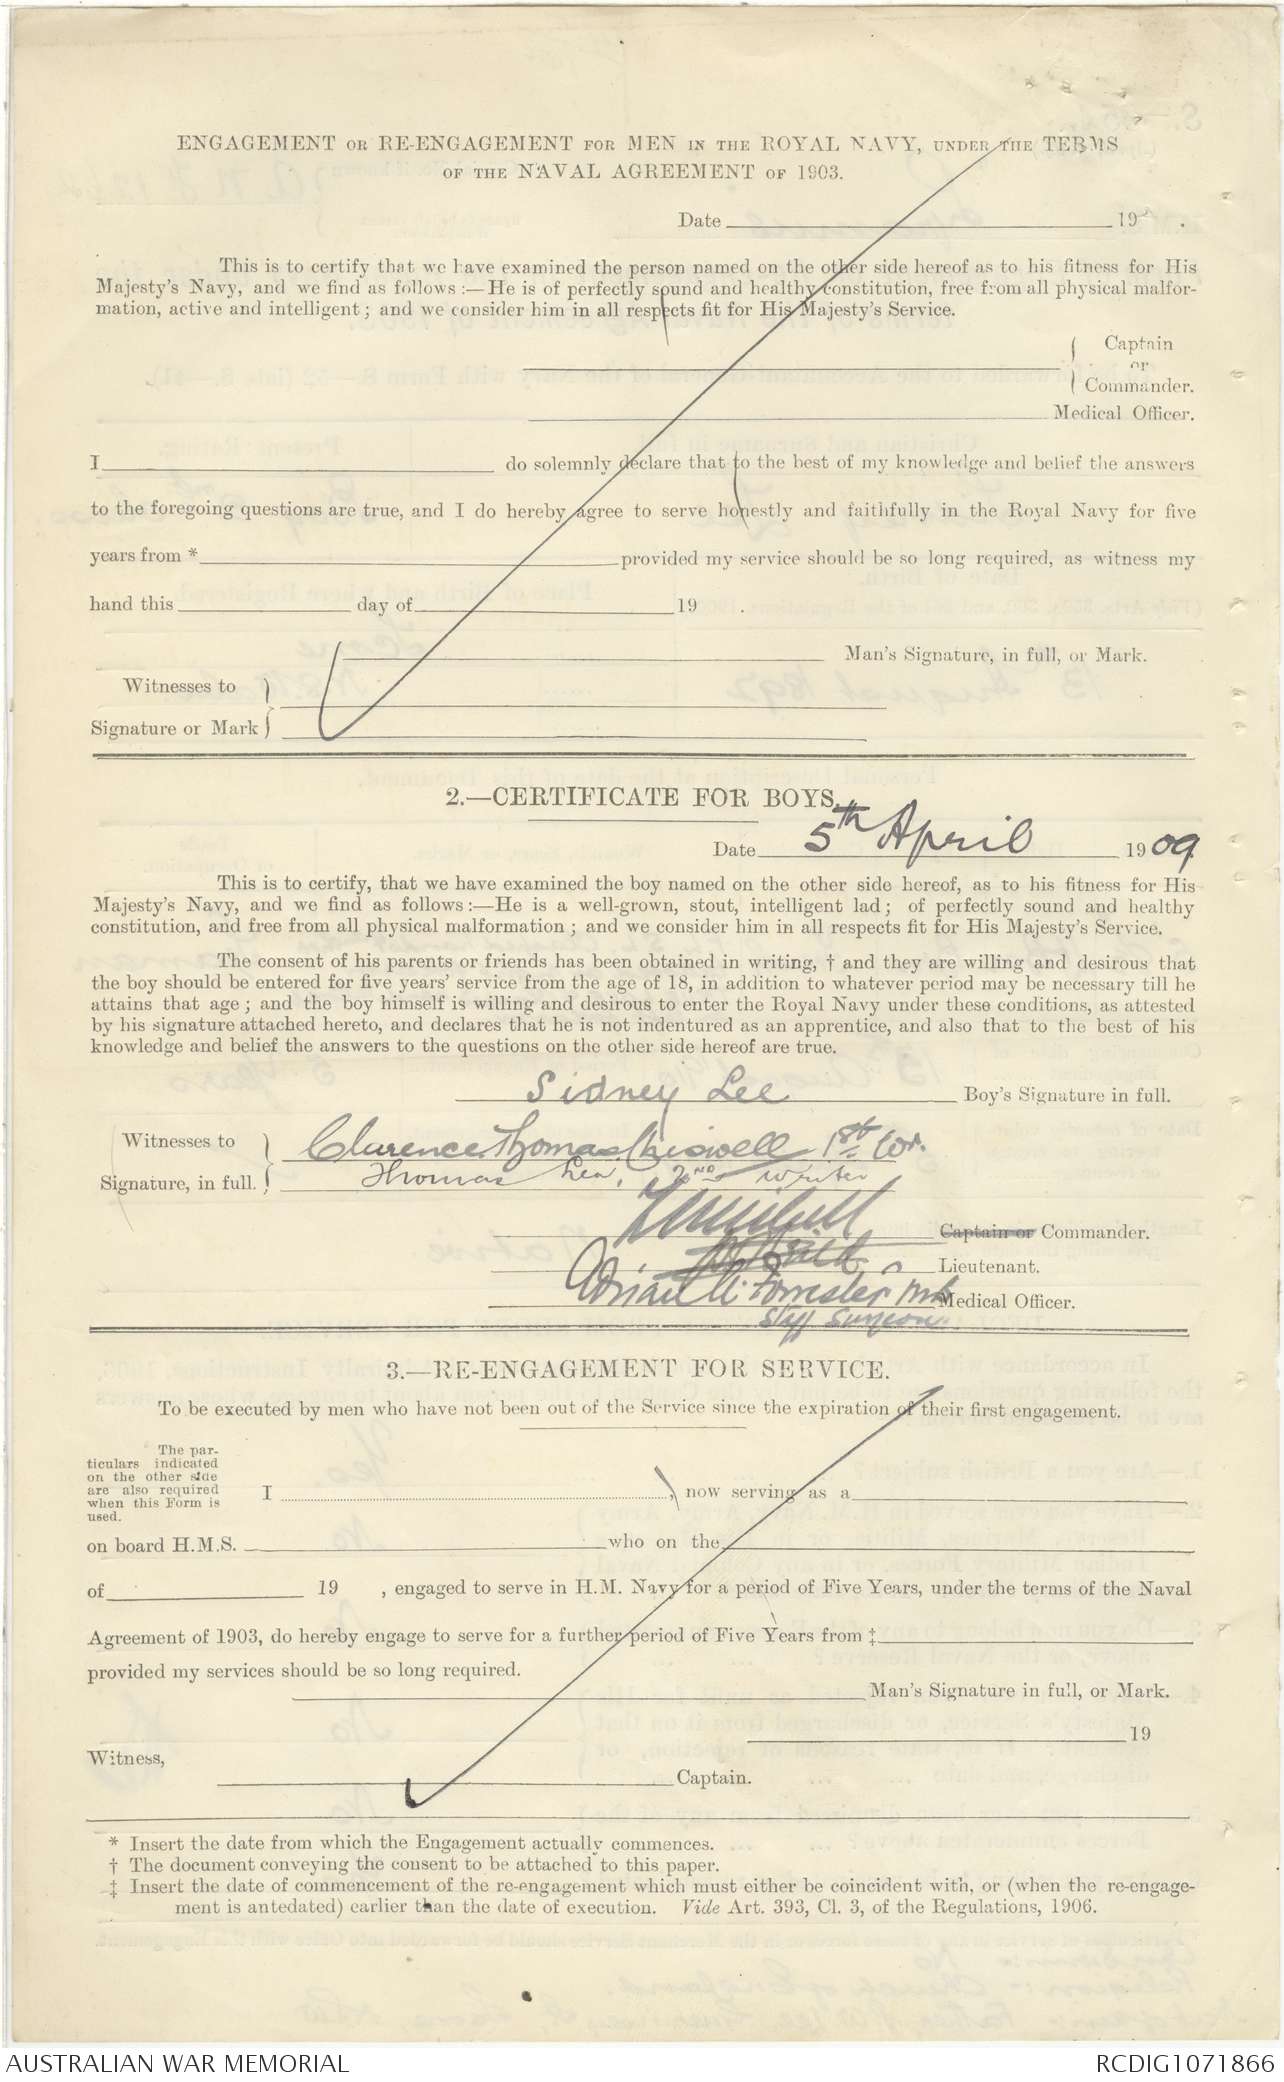 ENGAGEMENT OR RE-ENGAGEMENT FOR MEN IN THE ROYAL NAVY, UNDER THE TERMS
OF THE NAVAL AGREEMENT OF 1903.
Date 19 .
This is to certify that we have examined the person named on the other side hereof as to his fitness for His
Majesty's Navy, and we find as follows :—He is of perfectly sound and healthy constitution, free from all physical malfor-
mation, active and intelligent ; and we consider him in all respects fit for His Majesty's Service.
Captain
or
Commander.
Medical Officer.
I do solemnly declare that to the best of my knowledge and belief the answers
to the foregoing questions are true, and I do hereby agree to serve honestly and faithfully in the Royal Navy for five
years from * provided my service should be so long required, as witness my
hand this day of 19 .
Man's Signature, in full, or Mark.
Witnesses to
Signature or Mark
2.—CERTIFICATE FOR BOYS.
Date 5th April 1909
This is to certify, that we have examined the boy named on the other side hereof, as to his fitness for His
Majesty's Navy, and we find as follows :—He is a well-grown, stout, intelligent lad ; of perfectly sound and healthy
constitution, and free from all physical malformation ; and we consider him in all respects fit for His Majesty's Service.
The consent of his parents or friends has been obtained in writing, † and they are willing and desirous that
the boy should be entered for five years' service from the age of 18, in addition to whatever period may be necessary till he
attains that age ; and the boy himself is willing and desirous to enter the Royal Navy under these conditions, as attested
by his signature attached hereto, and declares that he is not indentured as an apprentice, and also that to the best of his
knowledge and belief the answers to the questions on the other side hereof are true.
Sidney Lee Boy's Signature in full.
Witnesses to
Clarence Thomas 1st Wr.
Signature, in full. Thomas 2nd Writer
Captain or Commander.
Lieutenant.
Adrian Forrester Medical Officer.
Staff Surgeon
3.—RE-ENGAGEMENT FOR SERVICE.
To be executed by men who have not been out of the Service since the expiration of their first engagement.
The par-
ticulars indicated
on the other side
are also required
when this Form is
used.
I , now serving as a
on board H.M.S. who on the
of 19 , engaged to serve in H.M. Navy for a period of Five Years, under the terms of the Naval
Agreement of 1903, do hereby engage to serve for a further period of Five Years from ‡
provided my services should be so long required.
Man's Signature in full, or Mark.
19
Witness,
Captain.
* Insert the date from which the Engagement actually commences.
† The document conveying the consent to be attached to this paper.
‡ Insert the date of commencement of the re-engagement which must either be coincident with, or (when the re-engage-
ment is antedated) earlier than the date of execution. Vide Art. 393, Cl. 3, of the Regulations, 1906.
AUSTRALIAN WAR MEMORIAL
RCDIG1071866